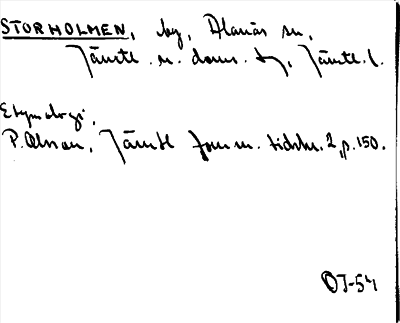 STORHOLMEN, by, Alanäs sn,
Jämtl. n. doms. tj, Jämtl. l.
Etymologi.
P. Olsson, Jämtl forn m. tidskr. 2, p. 150.
OJ-54